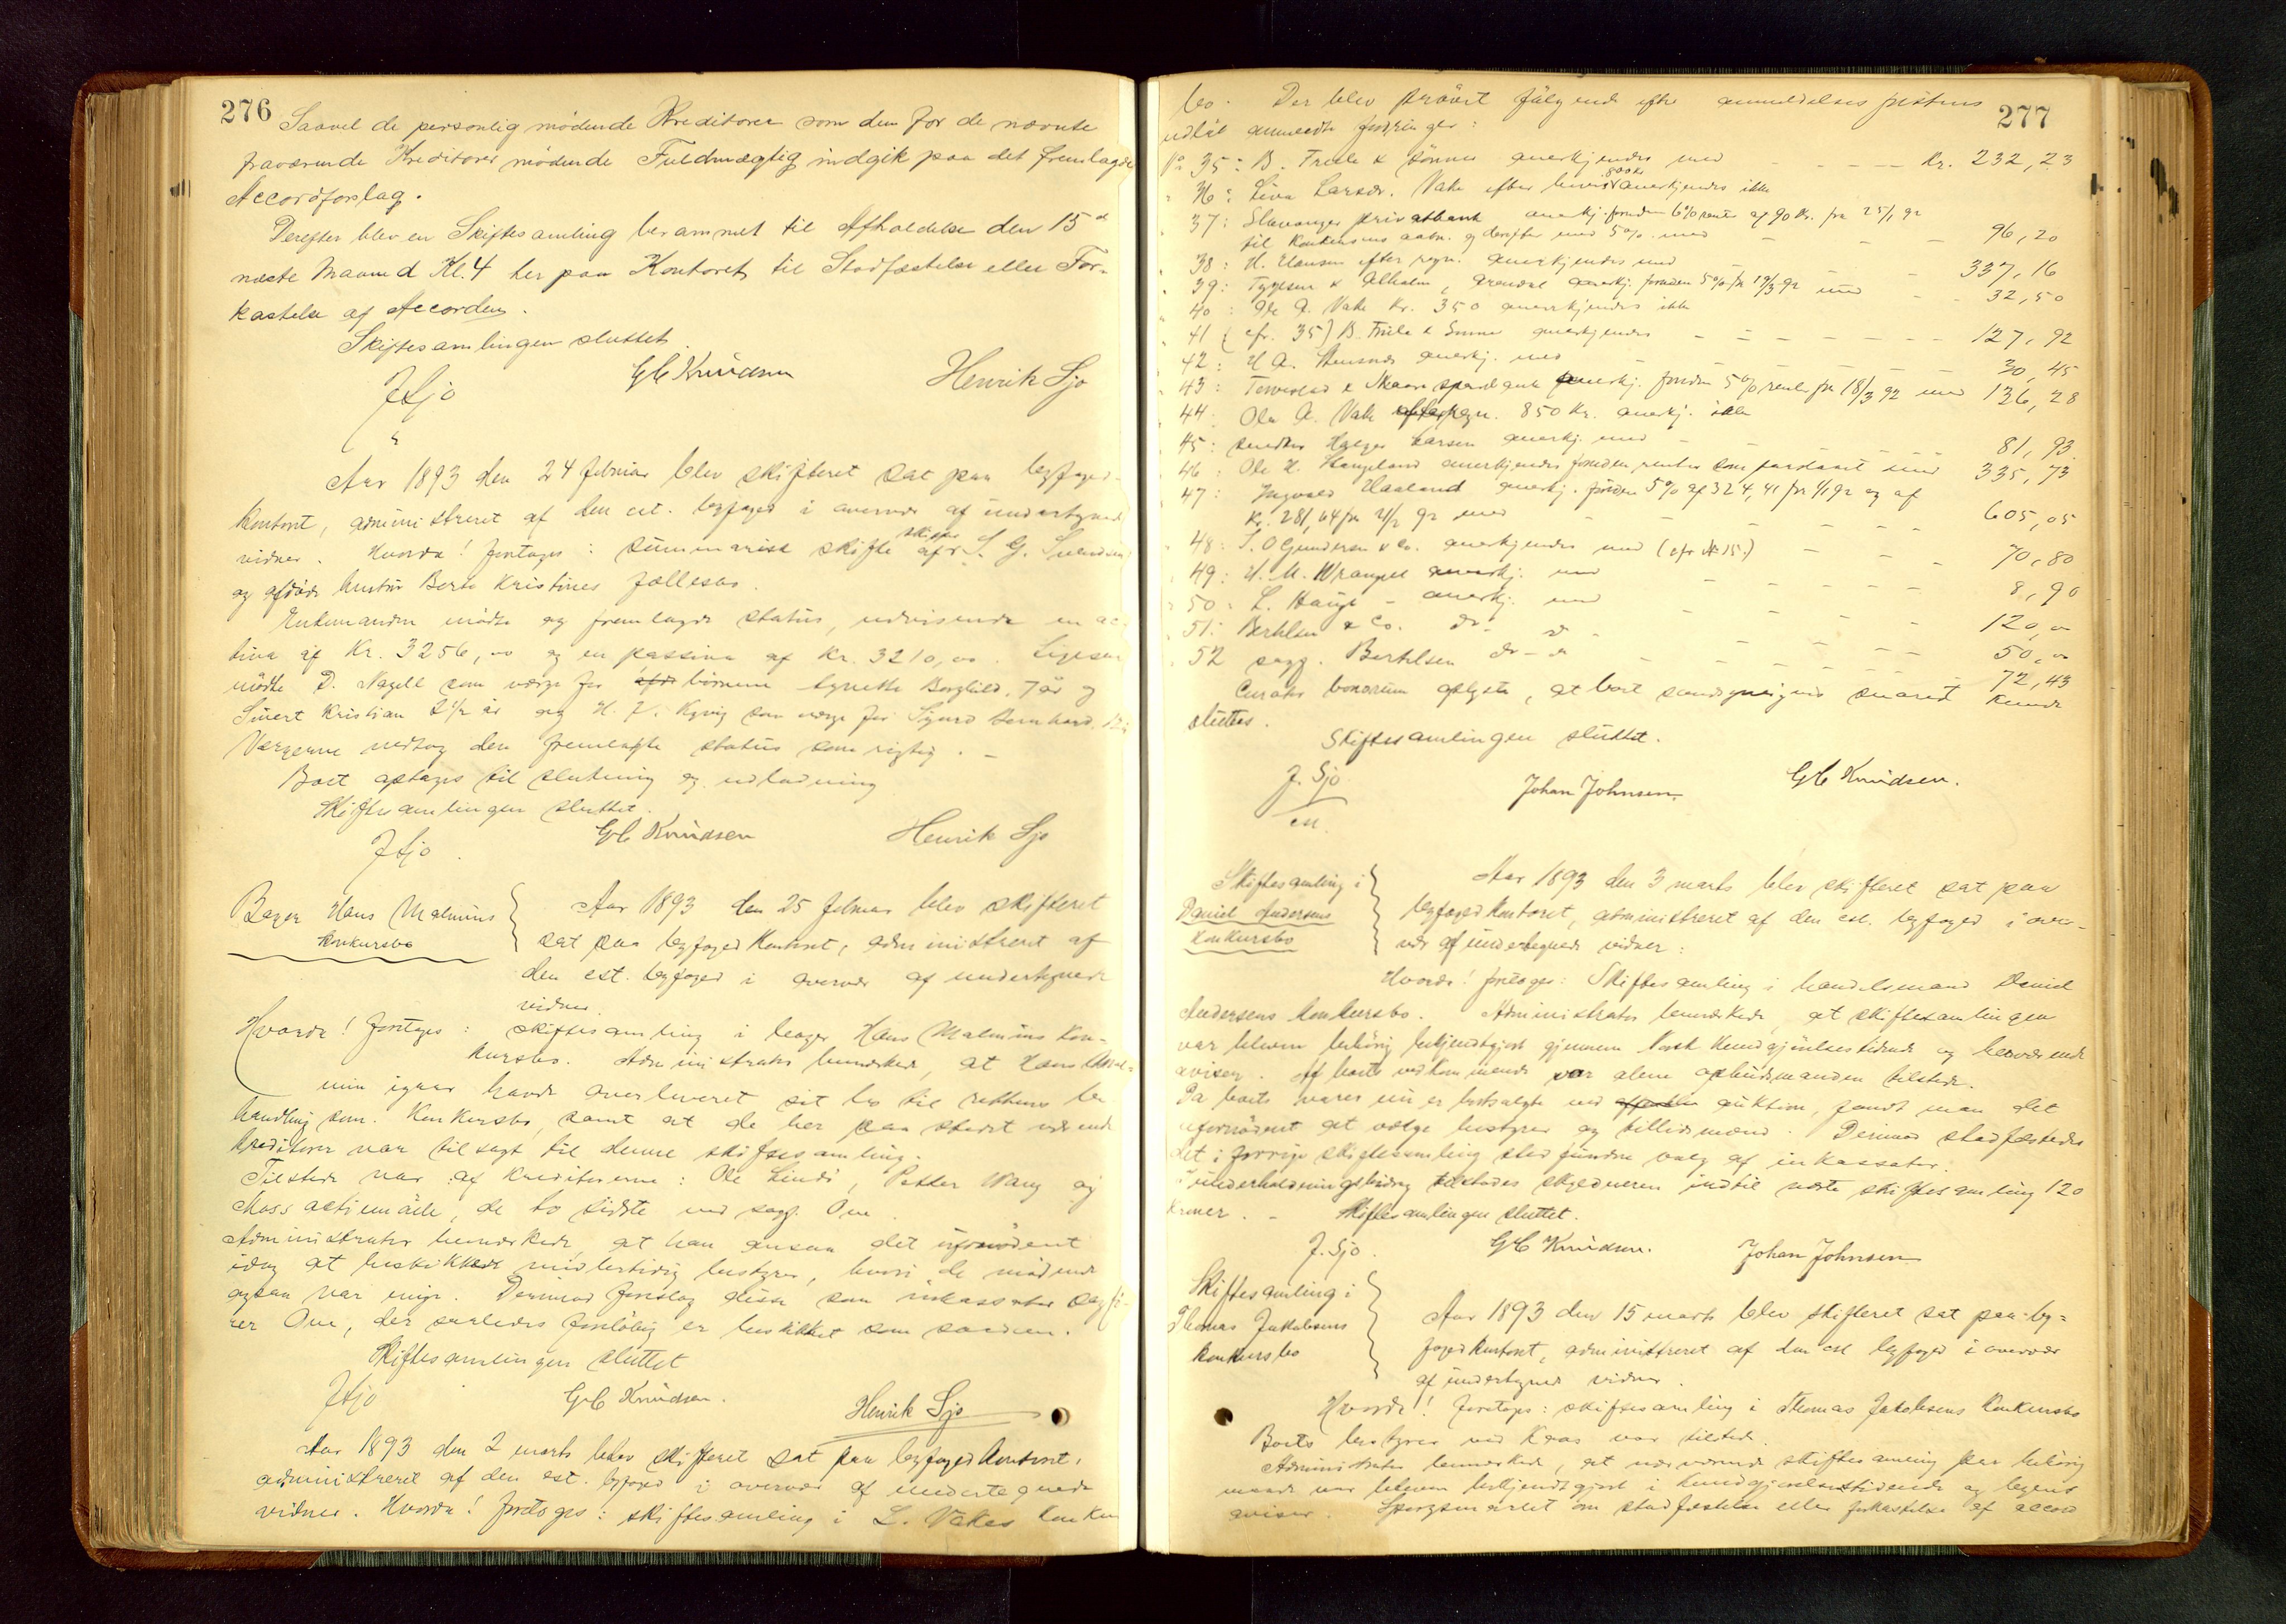 276
Saavel de personlig mödende Kreditorer som den for de nævnte
fraværende Kreditorer mödende Fuldmægtig indgik paa det fremlagde
Accordforslag.
Derefter blev en Skiftesamling berammet til Afholdelse den 15de
næste Maaned Kl. 4 her paa Kontoret til Stadfæstelse eller For-
kastelse af Accorden.
Skiftesamlingen sluttet.
J Sjo
G C Knudsen
Henrik Sjo
Aar 1893 den 24 februar blev skifteret sat paa byfoged-
kontoret, administreret af den cst. byfoged i overvær af undertegnede
vidner. Hvorda! foretoges: summarisk skifte efter skipper S. G. Svendsen
og afdöde hustru Berte Kristines fællesbo.
Enkemanden mödte og fremlagde status, udvisende en ac-
tiva af Kr. 3256,00 og en passiva af Kr. 3210,00. Ligesaa
mödte D. Nagell som verge for börnene Agnethe Borghild, 7 år og
Sivert Kristian 2 1/2 år og H. V. Kyvig som verge for Sigurd Bernhard
Vergerne vedtog den fremlagte status som rigtig. -
Boet optages til slutning og udlodning
Skiftesamlingen sluttet.
J Sjo.
G C Knudsen
Henrik Sjo
Bager Hans Malmins
konkursbo
Aar 1893 den 25 februar blev skifteret
sat paa byfogedkontoret, administreret af
den cst. byfoged i overvær af undertegnede
vidner.
Hvorda! foretoges: skiftesamling i bager Hans Malmins kon-
kursbo. Administrator bemærkede, at Hans Mal-
min igaar havde overleveret sit bo til rettens be-
handling som Konkursbo, samt at de her paa stedet værende
kreditorer var tilsagt til denne skiftesamling.
Tilstede var af kreditorerne: Ole Lindö, Petter Wang og
Moss actiemölle, de to sidste ved sagf. Ove
Administrator bemærkede, at han ansaa det ufornödent
idag at beskikke midlertidig bestyrer, hvori de mödende
ogsaa var enige. Derimod foreslog disse som inkassator sagfö-
rer Ove, der saaledes foreløbig er beskikket som saadan.
Skiftesamlingen sluttet
J Sjo
G C Knudsen.
Henrik Sjo
Aar 1893 den 2 marts blev skifteret sat paa byfogedkontoret,
administreret af den cst. byfoged i overvær af undertegnede
vidner. Hvorda! foretoges: skiftesamling i L. Vakes konkurs
277
bo. Der blev prövet fölgende efter anmeldelsesfristens
udløb anmeldte fordringer:
No 35: B. Friele & sönner anerkjendes med - - - Kr. 232,23
" 36: Liva Larsdr. Vake efter bevis 800 kr anerkjendes ikke
37: Stavanger privatbank anerkj. foruden 6% rente af 90 Kr. fra 25/1 92
til Konkursens aabn. og derefter med 5% med - - - 96,20
38: H. Clausen efter regn. anerkjendes med - - 337,16
39: Tygesen & Alholm, Arendal anerkj. foruden 5% fra 19/3 92 med - - 32,50
40: Ole A. Vake Kr. 350 anerkjendes ikke
41 (cfr. 35) B. Friele & Sönner anerkjendes - - - - 127,92
42: H A. anerkj. med - - - 30,45
43: Torvestad & Skaare sparebank anerkj. foruden 5% rente fra 18/3 92 med 136,28
44: Ola A. Vake regn. 850 Kr. anerkj. ikke
45: Helges Larsen anerkj. med - - - - 81,93
46: Ole H. Stangeland anerkjendes foruden renter som paastaaet med 335,73
47: Ingvald Haaland anerkj. foruden 5% af 324,41 fra 1/1 92 og af
Kr. 281,64 fra 2/2 92 med - - - 605,05
48: S. O Gundersen & Co. anerkjendes med (cfr No 15.) - - 70,80
49: H. M. Wrangell anerkj. med - - - - 8,90
50: L. Hauge - anerkj. med - - - - 120,00
51: Bertelsen & Co. do - do - - - 50,00
52 sagf. Bertelsen do - do - - - - 72,43
Curator bonorum oplyste, at boet sandsynligvis snarest kunde
sluttes.
Skiftesamlingen sluttet.
J. Sjo
cst.
Johan Johnsen.
G C Knudsen.
Skiftesamling i
Daniel Andersens
Konkursbo
Aar 1893 den 3 marts blev skifteret sat paa
byfogedkontoret, administreret af den cst. byfoged i over-
vær af undertegnede vidner:
Hvorda! foretoges: Skiftesamling i handelsmand Daniel
Andersens konkursbo. Administrator bemærkede, at skiftesamlingen
var bleven behörig bekjendtgjort gjennem Norsk Kundgjörelsestidende og herværende
aviser. Af boets vedkommende var alene opbudsmanden tilstede.
Da boets varer nu er bortsolgte ved auktion, fandt man det
ufornödent at vælge bestyrer og tillidsmænd. Derimod stadfæstedes
det i forrige skiftesamling stedfundne valg af inkassator.
I underholdningsbidrag tilstodes skyldneren indtil næste skiftesamling 120
kroner. - Skiftesamlingen sluttet.
J. Sjo.
G C Knudsen.
Johan Johnsen
Skiftesamling i
Thomas Jakobsens
konkursbo
Aar 1893 den 15 marts blev skifteret sat paa by-
fogedkontoret, administreret af den cst byfoged i overvær
af undertegnede vidner.
Hvorda! foretoges: skiftesamling i Thomas Jakobsens konkursbo
Boets bestyrer ved Kaas var tilstede.
Administrator bemærkede, at nærværende skiftesamling paa behörig
maade var bleven bekjendtgjort i kundgjörelsestidende og byens
aviser. Spörgsmaalet om stadfæstelse eller forkastelse af accord